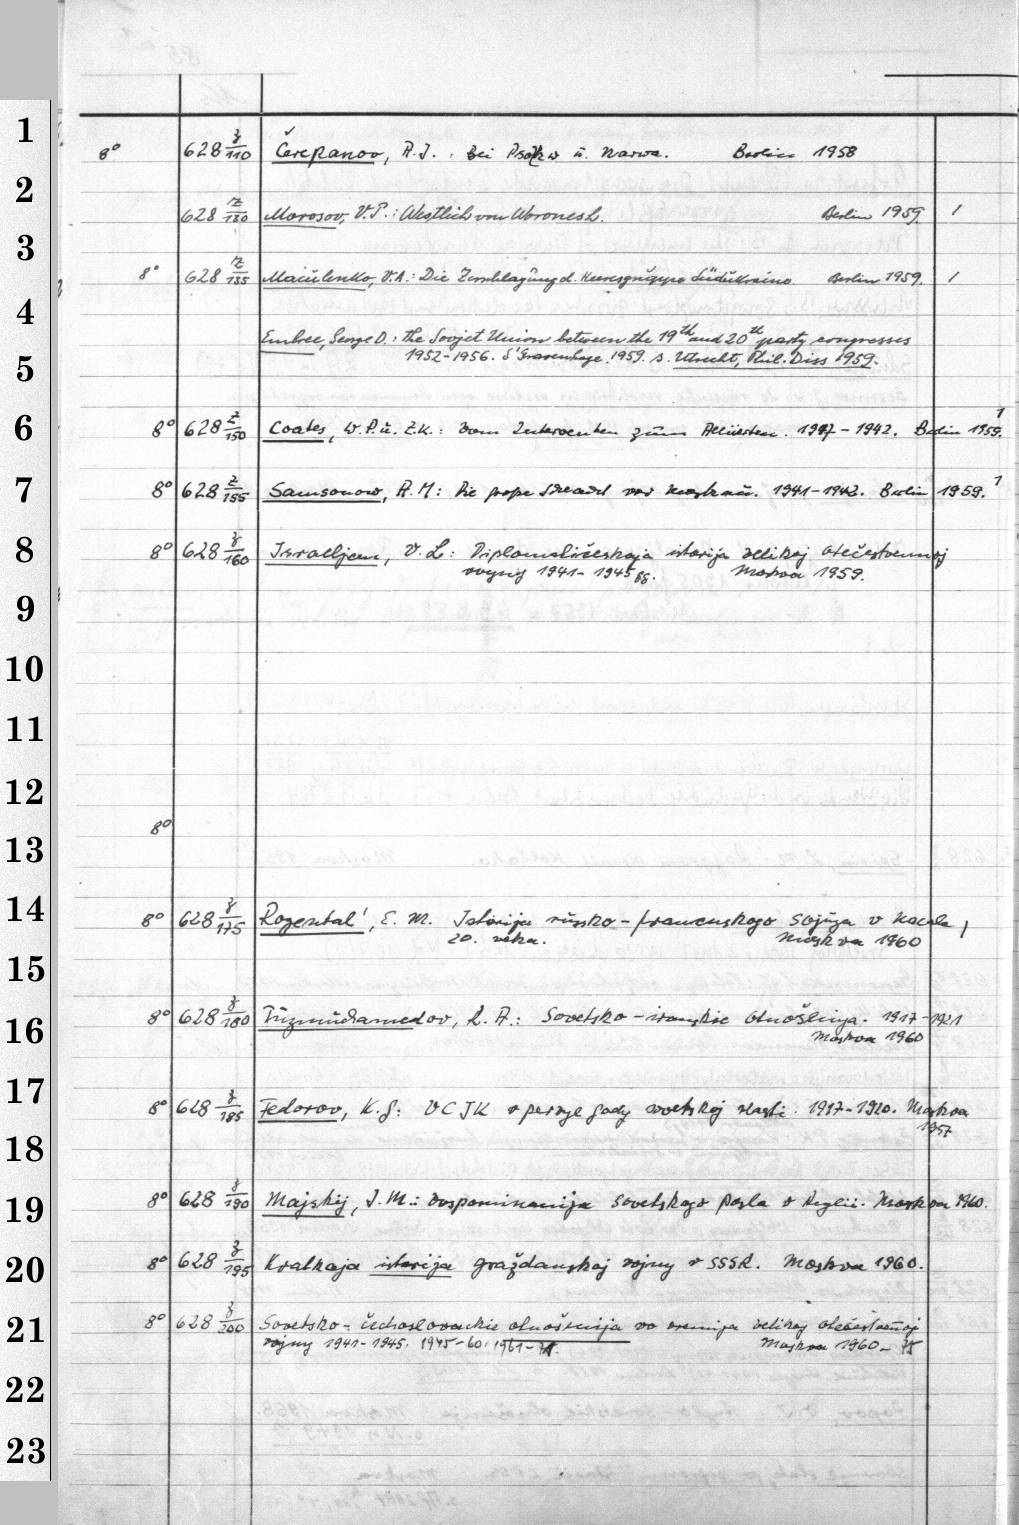 1
8° 628 z/110 Čerepanov, A.I.: Bei Pskow u. Narwa. Berlin 1958
2
628 Z/130 Morosov, V.P.: Westlich von Woronesh. Berlin 1959. 1
3
8° 628 Z/135 Maculenko, V.A.: Die Zerschlagung d. Heeresgruppe Südukraine Berlin 1959. 1
4
Embree, George D.: the Sovjet Union between the 19th and 20th party congresses
5
1952-1956. S'Gravenhage. 1959. s. Utrecht, Phil. Diss 1959.
6
8° 628 Z/150 Coates, W.P. u. Z.K.: Vom Interventen zum Alliierten. 1917-1942. Berlin 1959. 1
7
8° 628 Z/155 Samsonow, A.M: Die grosse Schlacht vor Moskau. 1941-1942. Berlin 1959. 1
8
8° 628 z/160 Israeljan, V.L: Diplomatičeskaja istorija velikoj otečestvennoj
vojny 1941-1945 gg. Moskva 1959.
9
10
11
12
8°
13
14
8° 628 z/175 Rozental', E. M. Istorija russko-francuzskogo sojuza v načale
20. veka. Moskva 1960
15
8° 628 z/180 L. A.: Sovetsko-iranskie otnošenija. 1917-1921
16
Moskva 1960
17
8° 628 z/185 Fedorov, K.G: VCIK v pervye gody sovetskoj vlasti. 1917-1920. Moskva
1957
18
8° 628 z/190 Majskij, I.M.: Vospominanija sovetskogo posla v Anglii. Moskva 1960.
19
20
8° 628 z/195 Kratkaja istorija graždanskoj vojny v SSSR. Moskva 1960.
21
8° 628 z/200 Sovetsko-čechoslovackie otnošenija vo vremja velikoj otečestvennoj
vojny 1941-1945. 1945-60. 1961- Moskva 1960-
22
23